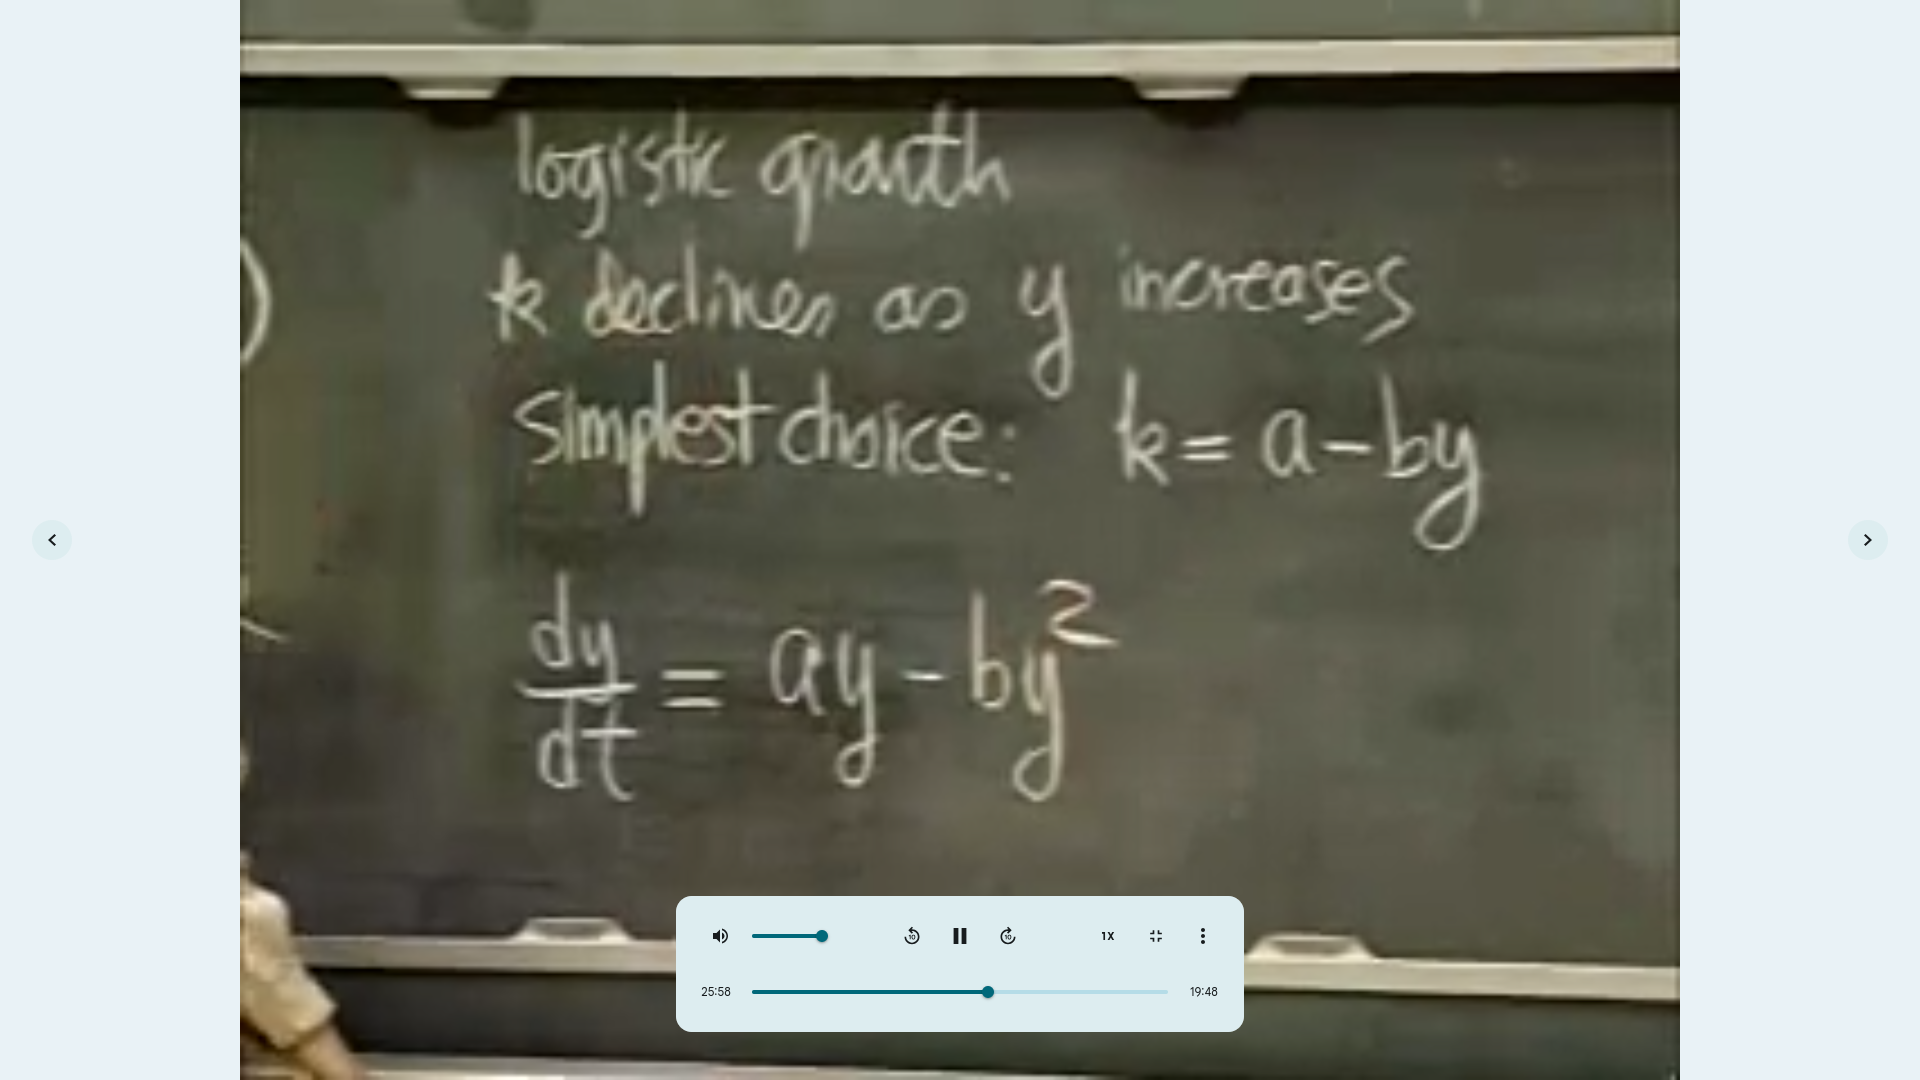 logistic growth
k declines as y increases
Simplest choice: k = a - by
dy/dt = ay - by²
10 10 1X
25:58 19:48